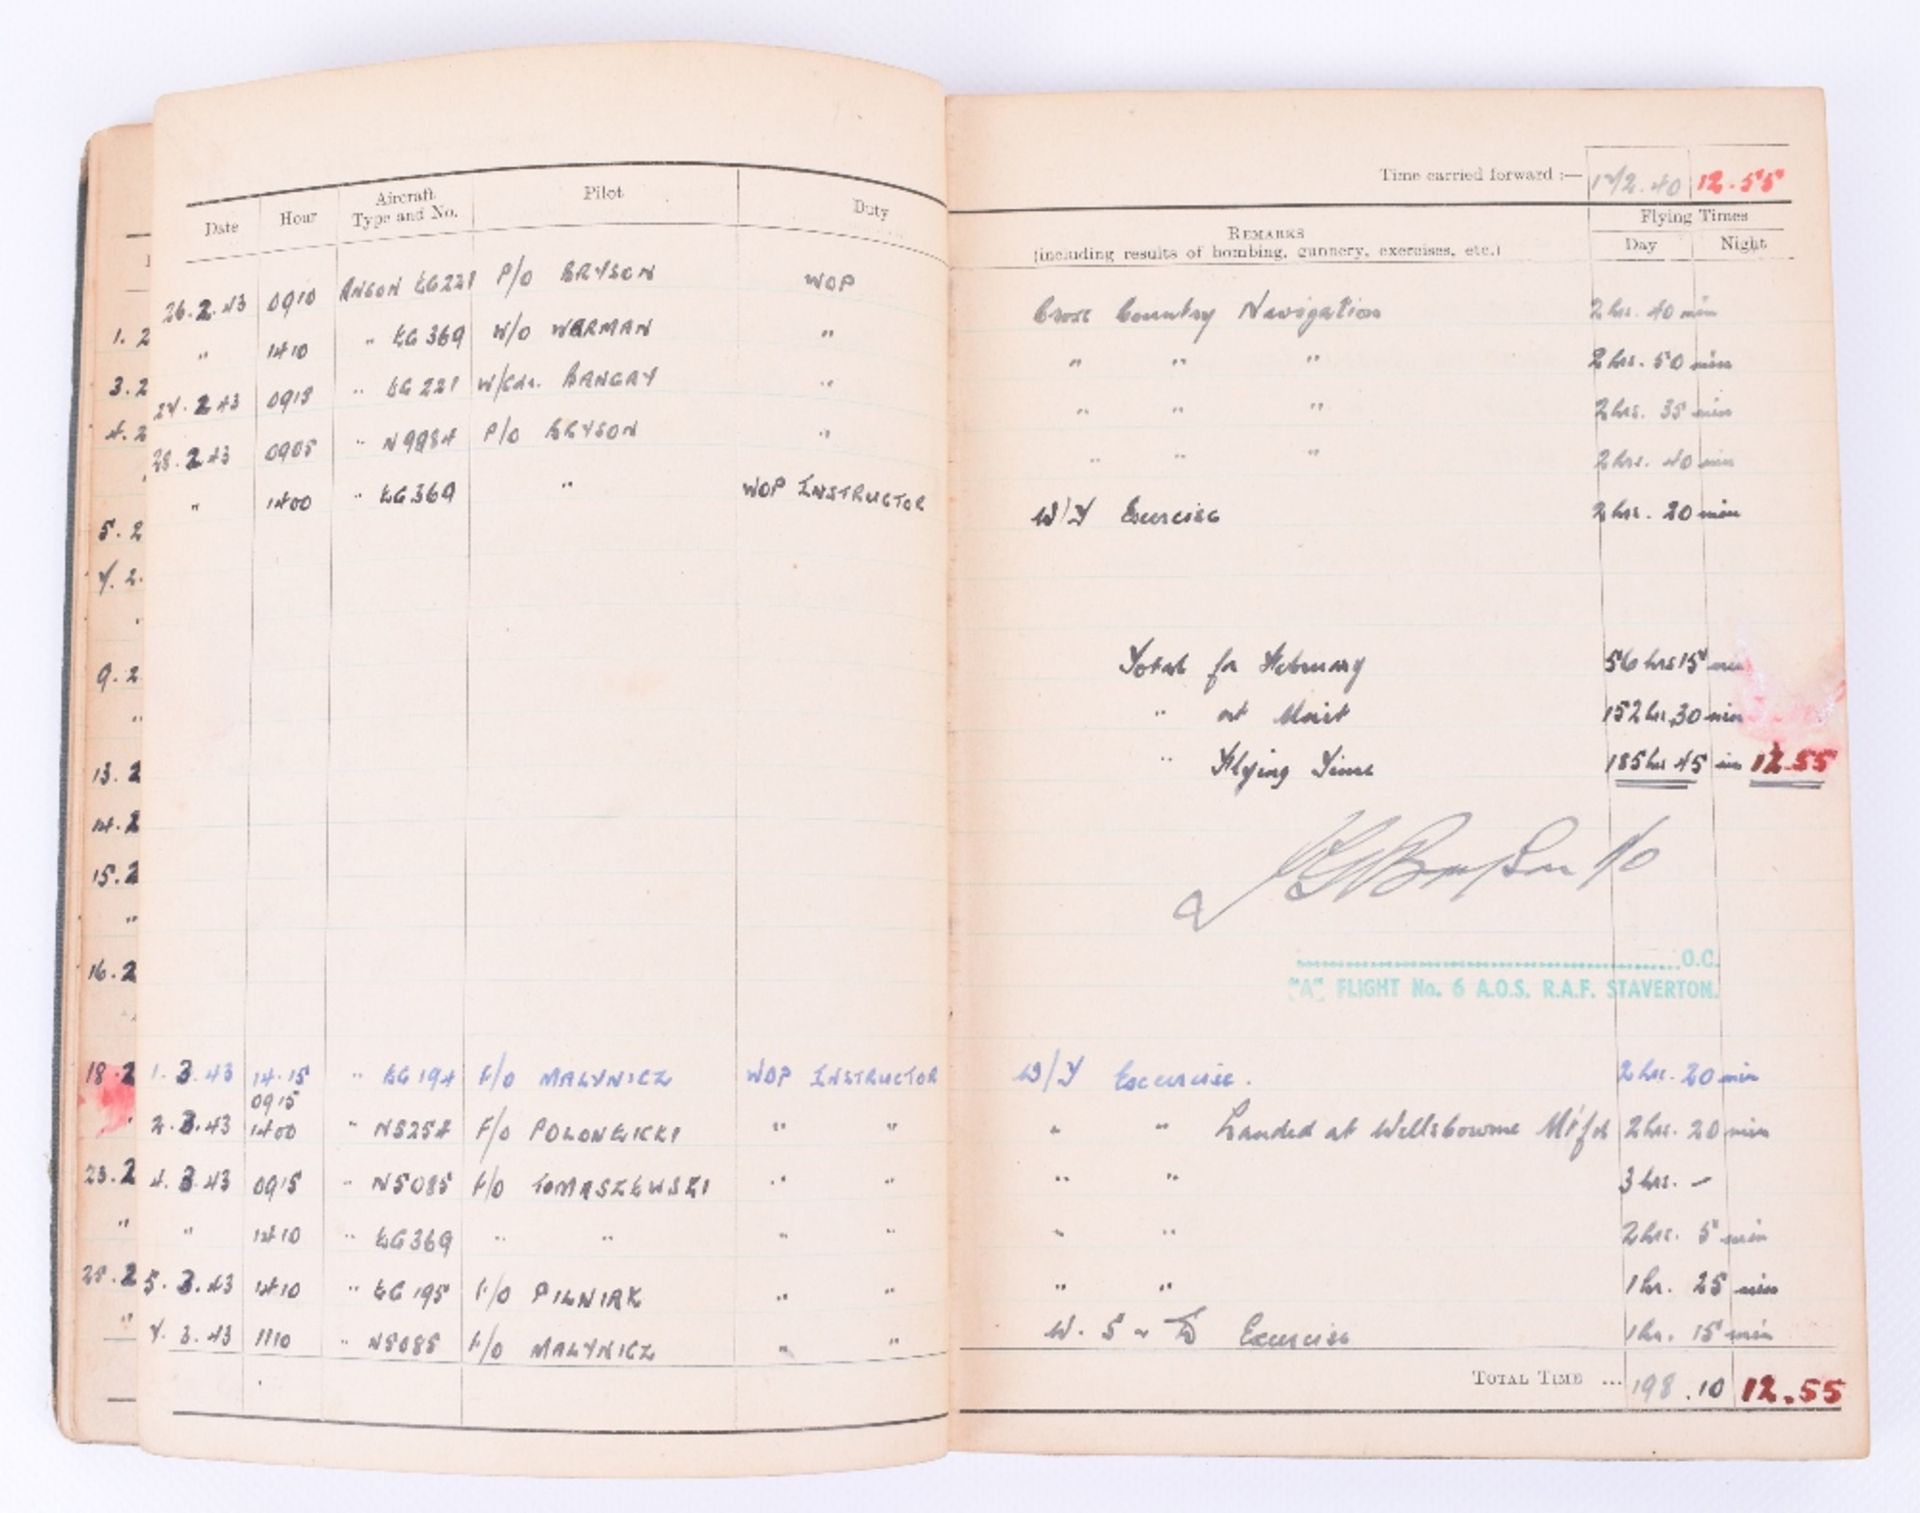 Time carried forward :— 172.40 12.55
Date Hour Aircraft Type and No. Pilot Duty
REMARKS (including results of bombing, gunnery, exercises, etc.) Flying Times Day Night
26.2.43 0910 ANSON EG221 P/O BRYSON WOP Cross Country Navigation 2 hrs. 40 min
" 1410 " EG369 W/O WARMAN " " " " 2 hrs. 50 min
27.2.43 0915 " EG221 W/Cdr. BANGAY " " " " 2 hrs. 35 min
28.2.43 0905 " N9984 P/O BRYSON " " " " 2 hrs. 40 min
" 1400 " EG369 " WOP INSTRUCTOR W/T Exercise 2 hrs. 20 min
Total for February 56 hrs 15 min
" at Unit 152 hrs 30 min
" Flying Time 185 hrs 45 min 12.55
O.C.
"A" FLIGHT No. 6 A.O.S. R.A.F. STAVERTON.
1.3.43 14.15 " EG194 F/O MALYNICZ WOP INSTRUCTOR W/T Excercise. 2 hrs. 20 min
0915
2.3.43 1400 " N5254 F/O POLONEICKI " " " " Landed at Wellsbourne Mt'fd 2 hrs. 20 min
4.3.43 0915 " N5085 F/O TOMASZEWSKI " " " " 3 hrs. —
" 1410 " EG369 " " " " " " 2 hrs. 5 min
5.3.43 1410 " EG195 F/O PILNIAK " " " " 1 hr. 25 min
7.3.43 1110 " N5085 F/O MALYNICZ " " W. S Exercise 1 hr. 15 min
TOTAL TIME ... 198.10 12.55
1. 2
3. 2
4. 2
5. 2
7. 2
"
9. 2
"
13. 2
14. 2
15. 2
"
16. 2
18. 2
"
23. 2
"
25. 2
"